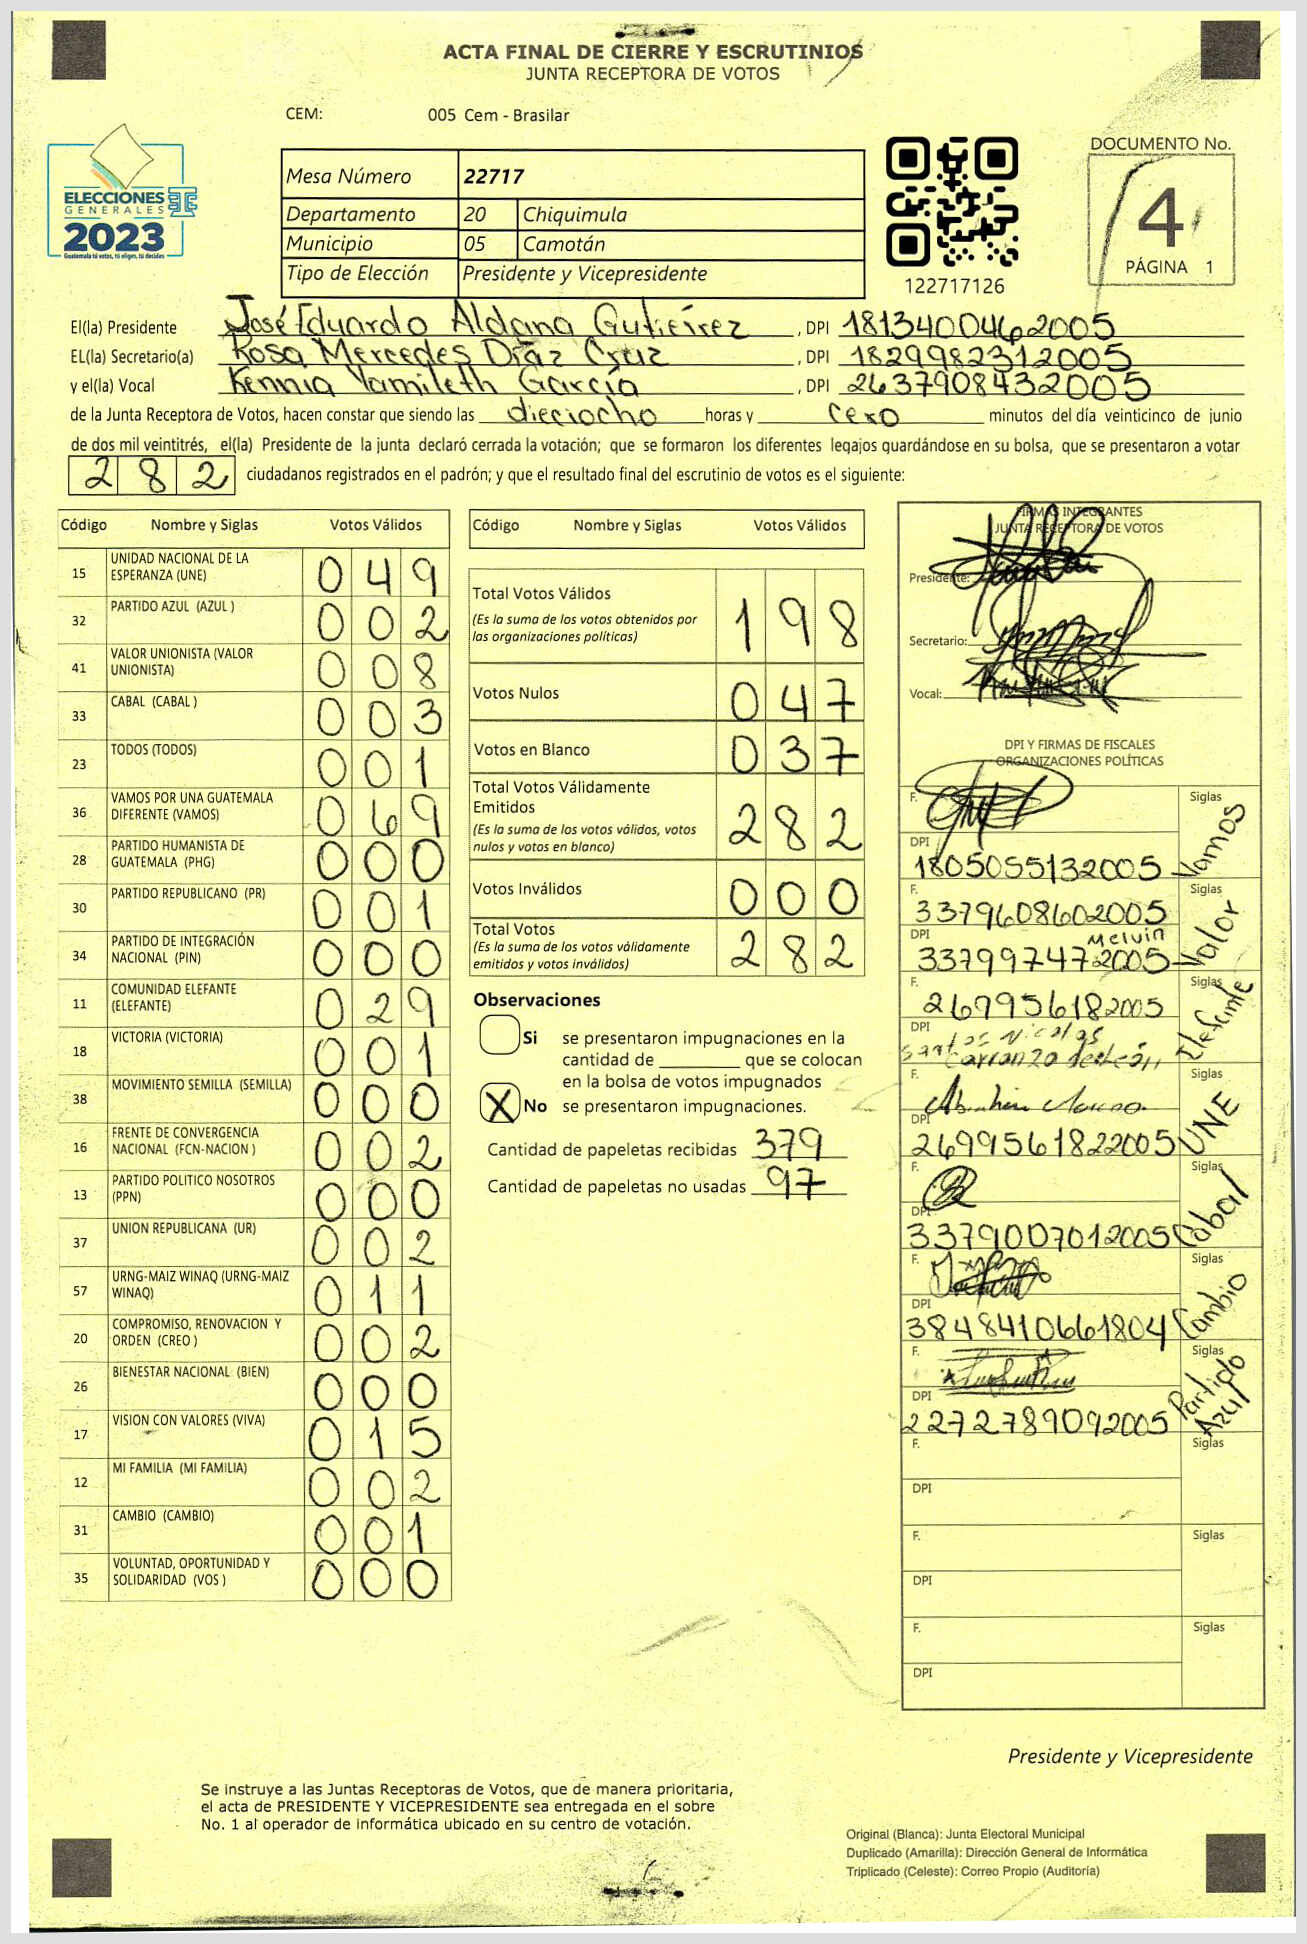 ACTA FINAL DE CIERRE Y ESCRUTINIOS
JUNTA RECEPTORA DE VOTOS
CEM: 005 Cem - Brasilar
ELECCIONES
GENERALES
2023
Guatemala tú votos, tú eliges, tú decides
Mesa Número 22717
Departamento 20 Chiquimula
Municipio 05 Camotán
Tipo de Elección Presidente y Vicepresidente
122717126
DOCUMENTO No.
4
PÁGINA 1
El(la) Presidente José Eduardo Aldana Gutiérrez , DPI 1813400462005
EL(la) Secretario(a) Rosa Mercedes Díaz Cruz , DPI 1829982312005
y el(la) Vocal Kennia Yamileth García , DPI 2637908432005
de la Junta Receptora de Votos, hacen constar que siendo las dieciocho horas y cero minutos del día veinticinco de junio
de dos mil veintitrés, el(la) Presidente de la junta declaró cerrada la votación; que se formaron los diferentes legajos guardándose en su bolsa, que se presentaron a votar
282 ciudadanos registrados en el padrón; y que el resultado final del escrutinio de votos es el siguiente:
Código Nombre y Siglas Votos Válidos
15 UNIDAD NACIONAL DE LA ESPERANZA (UNE) 049
32 PARTIDO AZUL (AZUL ) 002
41 VALOR UNIONISTA (VALOR UNIONISTA) 008
33 CABAL (CABAL ) 003
23 TODOS (TODOS) 001
36 VAMOS POR UNA GUATEMALA DIFERENTE (VAMOS) 069
28 PARTIDO HUMANISTA DE GUATEMALA (PHG) 000
30 PARTIDO REPUBLICANO (PR) 001
34 PARTIDO DE INTEGRACIÓN NACIONAL (PIN) 000
11 COMUNIDAD ELEFANTE (ELEFANTE) 029
18 VICTORIA (VICTORIA) 001
38 MOVIMIENTO SEMILLA (SEMILLA) 000
16 FRENTE DE CONVERGENCIA NACIONAL (FCN-NACION ) 002
13 PARTIDO POLITICO NOSOTROS (PPN) 000
37 UNION REPUBLICANA (UR) 002
57 URNG-MAIZ WINAQ (URNG-MAIZ WINAQ) 011
20 COMPROMISO, RENOVACION Y ORDEN (CREO ) 002
26 BIENESTAR NACIONAL (BIEN) 000
17 VISION CON VALORES (VIVA) 015
12 MI FAMILIA (MI FAMILIA) 002
31 CAMBIO (CAMBIO) 001
35 VOLUNTAD, OPORTUNIDAD Y SOLIDARIDAD (VOS ) 000
Código Nombre y Siglas Votos Válidos
Total Votos Válidos 198
(Es la suma de los votos obtenidos por
las organizaciones políticas)
Votos Nulos 047
Votos en Blanco 037
Total Votos Válidamente
Emitidos 282
(Es la suma de los votos válidos, votos
nulos y votos en blanco)
Votos Inválidos 000
Total Votos 282
(Es la suma de los votos válidamente
emitidos y votos inválidos)
Observaciones
Si se presentaron impugnaciones en la
cantidad de ________ que se colocan
en la bolsa de votos impugnados
X No se presentaron impugnaciones.
Cantidad de papeletas recibidas 379
Cantidad de papeletas no usadas 97
FIRMAS INTEGRANTES
JUNTA RECEPTORA DE VOTOS
Presidente:
Secretario:
Vocal:
DPI Y FIRMAS DE FISCALES
ORGANIZACIONES POLÍTICAS
F. Siglas
DPI 1805055132005 Vamos
F. 3379608602005 Siglas
DPI Melvin
3379974722005 Valor
F. 269956182005 Siglas
DPI Santos Nicolas Elefante
Carranza
F. Abraham Siglas
DPI 2699561822005 UNE
F. Siglas
DPI 3379007012005 Cabal
F. Siglas
DPI 3848410661804 Cambio
F. Siglas
DPI 2272789092005 Partido Azul
F. Siglas
DPI
F. Siglas
DPI
F. Siglas
DPI
Presidente y Vicepresidente
Se instruye a las Juntas Receptoras de Votos, que de manera prioritaria,
el acta de PRESIDENTE Y VICEPRESIDENTE sea entregada en el sobre
No. 1 al operador de informática ubicado en su centro de votación.
Original (Blanca): Junta Electoral Municipal
Duplicado (Amarilla): Dirección General de Informática
Triplicado (Celeste): Correo Propio (Auditoría)